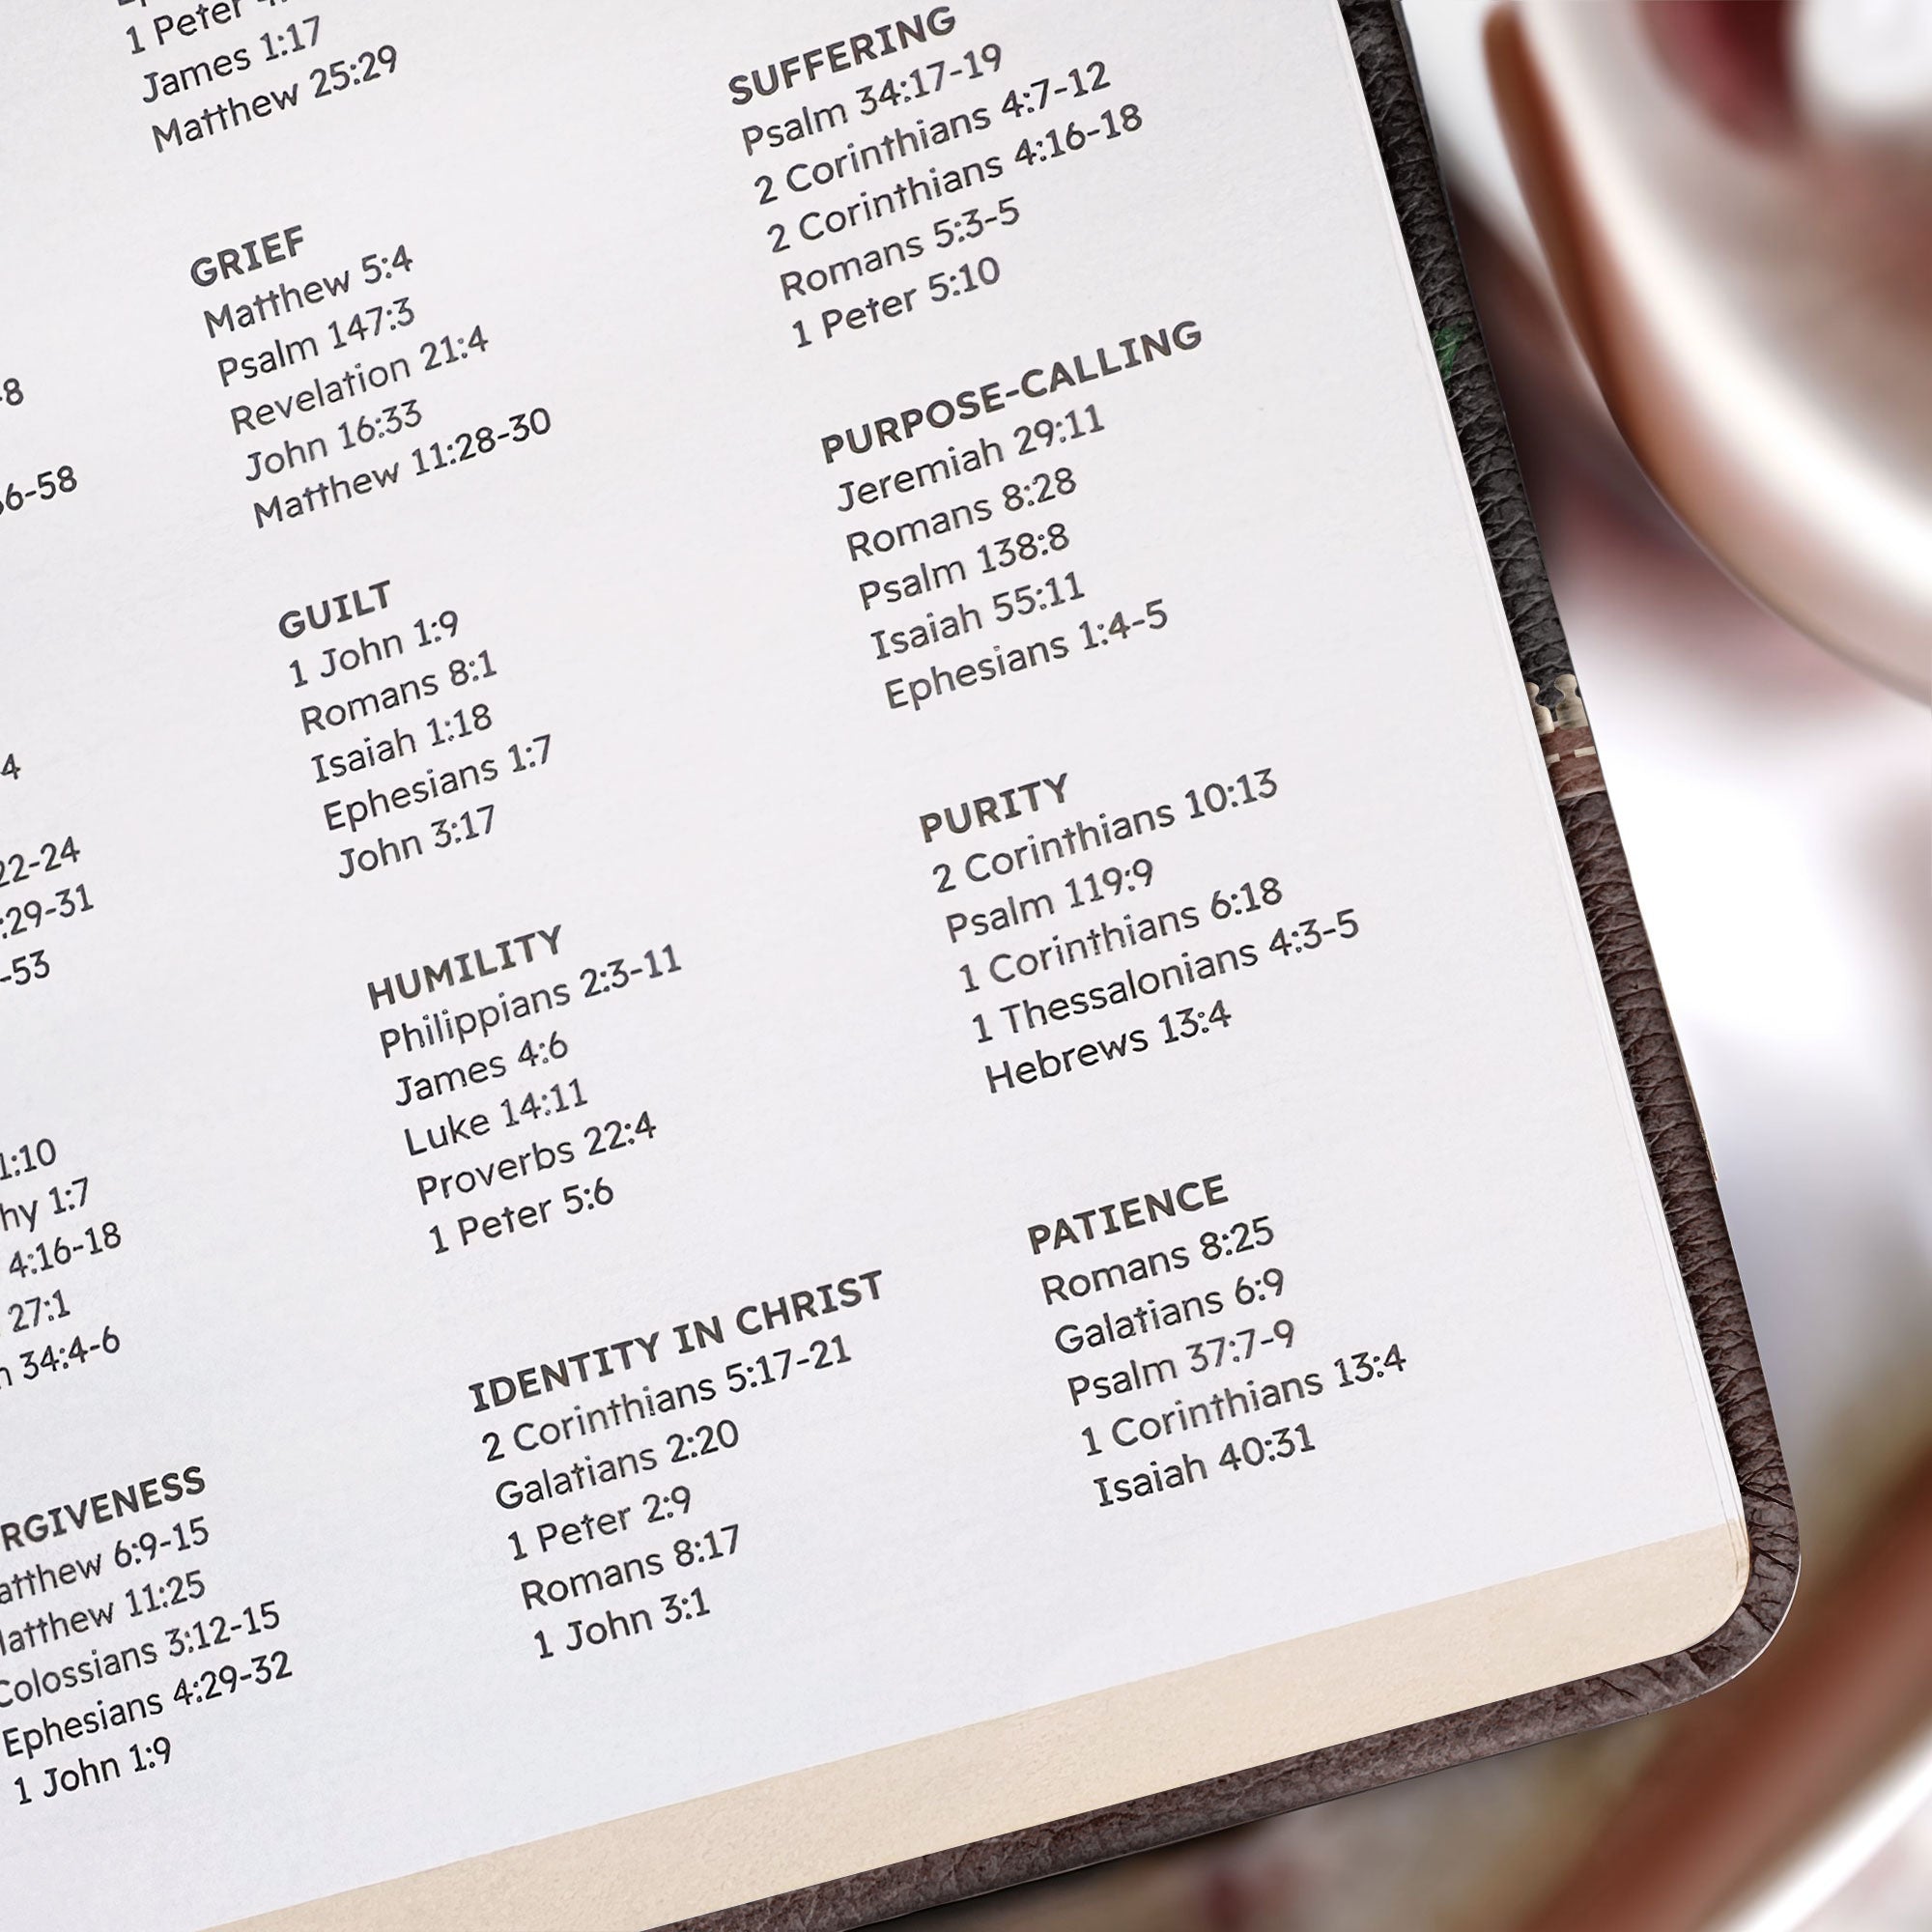 1 Peter
James 1:17
Matthew 25:29
GRIEF
Matthew 5:4
Psalm 147:3
Revelation 21:4
John 16:33
Matthew 11:28-30
GUILT
1 John 1:9
Romans 8:1
Isaiah 1:18
Ephesians 1:7
John 3:17
HUMILITY
Philippians 2:3-11
James 4:6
Luke 14:11
Proverbs 22:4
1 Peter 5:6
IDENTITY IN CHRIST
2 Corinthians 5:17-21
Galatians 2:20
1 Peter 2:9
Romans 8:17
1 John 3:1
SUFFERING
Psalm 34:17-19
2 Corinthians 4:7-12
2 Corinthians 4:16-18
Romans 5:3-5
1 Peter 5:10
PURPOSE-CALLING
Jeremiah 29:11
Romans 8:28
Psalm 138:8
Isaiah 55:11
Ephesians 1:4-5
PURITY
2 Corinthians 10:13
Psalm 119:9
1 Corinthians 6:18
1 Thessalonians 4:3-5
Hebrews 13:4
PATIENCE
Romans 8:25
Galatians 6:9
Psalm 37:7-9
1 Corinthians 13:4
Isaiah 40:31
-8
6-58
4
22-24
:29-31
-53
1:10
hy 1:7
4:16-18
27:1
34:4-6
RGIVENESS
atthew 6:9-15
atthew 11:25
Colossians 3:12-15
Ephesians 4:29-32
1 John 1:9